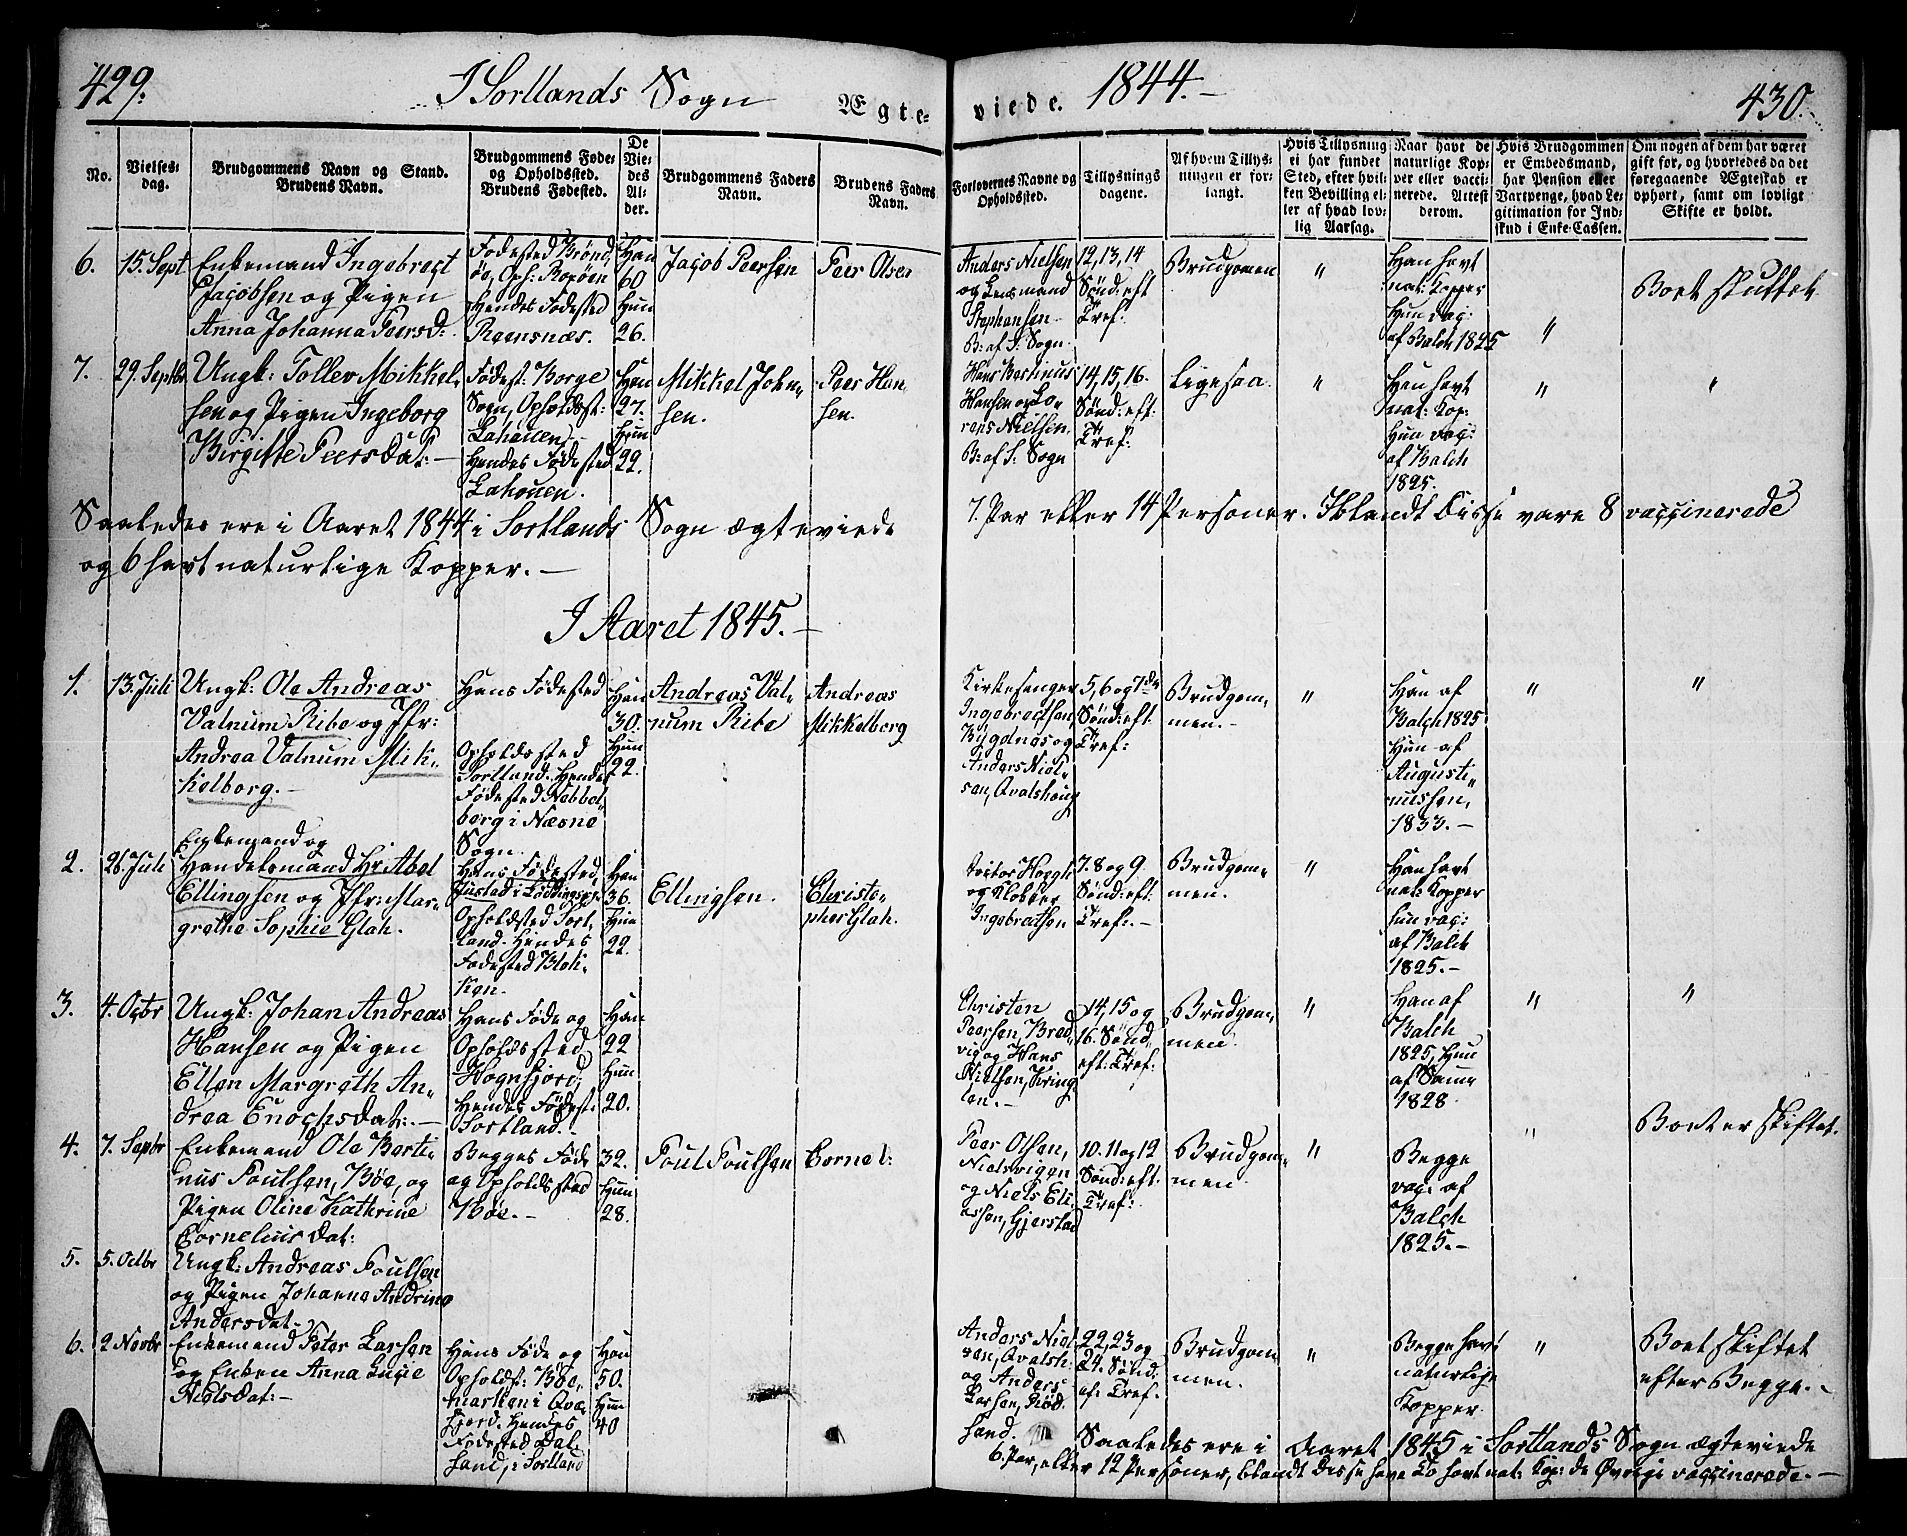 429.
I Sortlands Sogn
Ægte-
viede.
1844.-
430.
No.
Vielses-
dag.
Brudgommens Navn og Stand.
Brudens Navn.
Brudgommens Føde-
og Opholdssted.
Brudens Fødested.
De
Vie-
des
Al-
der.
Brudgommens Faders
Navn.
Brudens Faders
Navn.
Forlovernes Navne og
Opholdssted.
Tillysnings
dagene.
Af hvem Tillys-
ningen er for-
langt.
Hvis Tillysning
ei har fundet
Sted, efter hvil-
ken Bevilling el-
ler af hvad lov-
lig Aarsag.
Naar havt de
naturlige Kop-
per eller vacci-
nerede. Attest
derom.
Hvis Brudgommen
er Embedsmand,
har Pension eller
Vartpenge, hvad Le-
gitimation for Ind-
skud i Enke-Cassen.
Om nogen af dem har været
gift før, og hvorledes da det
foregaaende Ægteskab er
ophørt, samt om lovligt
Skifte er holdt.
6.
15. Sept
Enkemand Ingebregt
Jacobsen og Pigen
Anna Johanna Peersd:
Fødested Brønd,
øe, Oph:
Hendes Fødested
Reensnæs.
Han
60
Hun
26.
Jacob Peersen
Peer Olsen
Anders Nielsen
og Lensmand
Stephensen
B: af S: Sogn.
12, 13, 14
Sønd: eft
Tref:
Brudgomen
"
Han havt
nat: Kopper
Hun vac:
af Balch 1825
"
Boet skiftet
7.
29. Septbr
Ungk: Tollev Mikkel,
sen og Pigen Ingeborg
Birgitte Peersdat:-
Fødest: Borge
Sogn, Opholdsst:
Lahauen,
Hendes Fødested
Lahauen.
Han
27.
Hun
22.
Mikkel John-
sen.
Peer Han-
sen.
Hans Bertinus
Hansen og Lo-
rens Nielsen.
B: af S: Sogn
14, 15, 16.
Sønd: eft:
Tref:
Ligesaa.
"
Han havt
nat: Kop:
Hun vac:
af Balch
1825.
"
"
Saaledes ere i Aaret 1844 i Sortlands Sogn ægteviede
7. Par eller 14 Personer. Iblandt Disse vare 8 vaccinerede
og 6 havt naturlige Kopper.-
I Aaret 1845.-
1.
13. Juli
Ungk: Ole Andreas
Valnum Ribe og Jfr:
Andrea Valnum Mik-
kelborg.-
Hans Fødested
Opholdssted
Sortland. Hendes
Fødested Nebbel,
berg i Næsne
Sogn.
Han
30.
Hun
22.
Andreas Val-
num Ribe
Andreas
Mikkelborg
Kirkesanger
Ingebregtsen
Bygdnes og
Anders Niel-
sen, Qvalshaug
5, 6 og 7de
Sønd: eft:
Tref:
Brudgom-
men.-
"
Han af
Balch 1825.
Hun af
Augusti-
nussen,
1833.-
"
"
2.
26. Juli
Enkemand og
Handelsmand Hr: Abel
Ellingsen og Jfr: Mar-
grethe Sophie Glah.
Hans Fødested,
Justad i Buksnæs
Opholdsted Sort,
land. Hendes
Fødested Blok-
ken.
Han
36.
Hun
22.
Ellingsen.
Christo-
pher Glah.
og Klokker
Ingebretsen
7. 8 og 9.
Sønd: eft:
Tref:-
Brudgom-
men.
"
Han havt
nat: Kopper
hun vac:
af Balch
1825.-
3.
4. Octbr
Ungk: Johan Andreas
Hansen og Pigen
Ellen Margreth An-
drea Enochsdat:-
Hans Føde og
Opholdssted
Hognfjord,
Hendes Fødest:
Sortland.
Han
22
Hun
20.
Christen
Peersen, Bred-
vig og Hans
Nielsen, Kring-
len.-
14, 15 og
16. Sønd
eft: Tref:
Brudgom-
men.
"
Han af
Balch
1825, Hun
af Saum
1828.
"
"
4.
7. Sepbr
Enkemand Ole Berti-
nus Poulsen, Bøe, og
Pigen Oline Kathrine
Cornelius dat:
Begges Føde
og Opholdssted
Bøe.-
32.
Hun
28.
Poul Poulsen
Cornel:
Peer Olsen,
Nielsvigen
og Niels Eli-
assen, Gjerstad
10. 11 og 12
Sønd: eft.
Tref:
Brudgom-
men.
"
Begge
vac: af
Balch
1825.-
"
Boet er skiftet.
5.
5. Octbr
Ungk: Andreas Poulsen
og Pigen Johanna Andrina
Andersdat.
6.
2 Novbr
Enkemand Peter Larsen
og Enken Anna Lucie
Nielsdat:-
Hans Føde og
Opholdst: Bøe,
marken i Qvæ-
fjord. Hendes
Fødested Dal,
sand, i Sortland
Han
50.
Hun
40
Anders Niel-
sen, Qvalsh:
og Anders
Larsen, Rød-
sand.
22, 23 og
24. Sønd.
ef: Tref.
Brudgom
men.
"
Begge havt
naturlige
Kopper.
"
Boet skiftet
efter Begge.-
Saaledes ere i Aaret 1845 i Sortlands Sogn ægteviede
6. Par, eller 12 Personer, blandt disse have To havt nat: Kop: de Øvrige vaccinerede.-